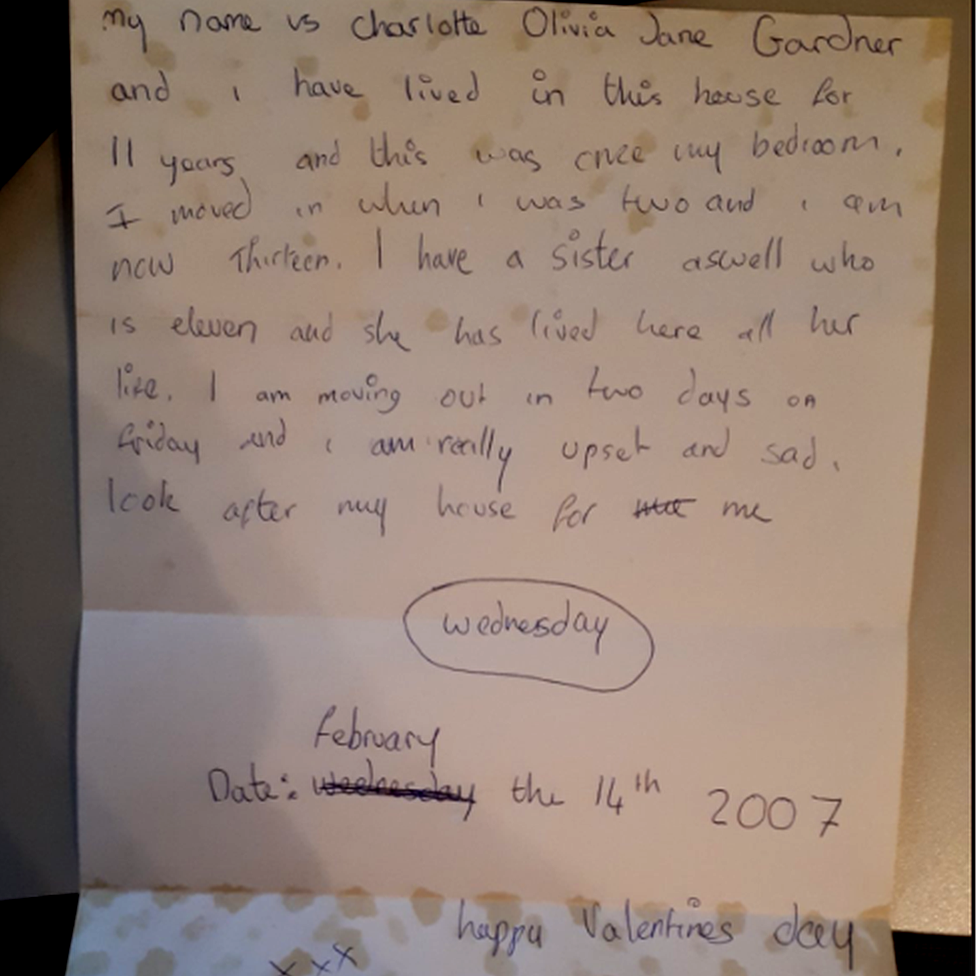 My name is Charlotte Olivia Jane Gardner
and i have lived in this house for
11 years and this was once my bedroom.
I moved in when i was two and i am
now Thirteen. I have a sister aswell who
is eleven and she has lived here all her
life. I am moving out in two days on
friday and i am really upset and sad.
look after my house for me
wednesday
february
Date: wednesday the 14th 2007
happy Valentines day
x x x